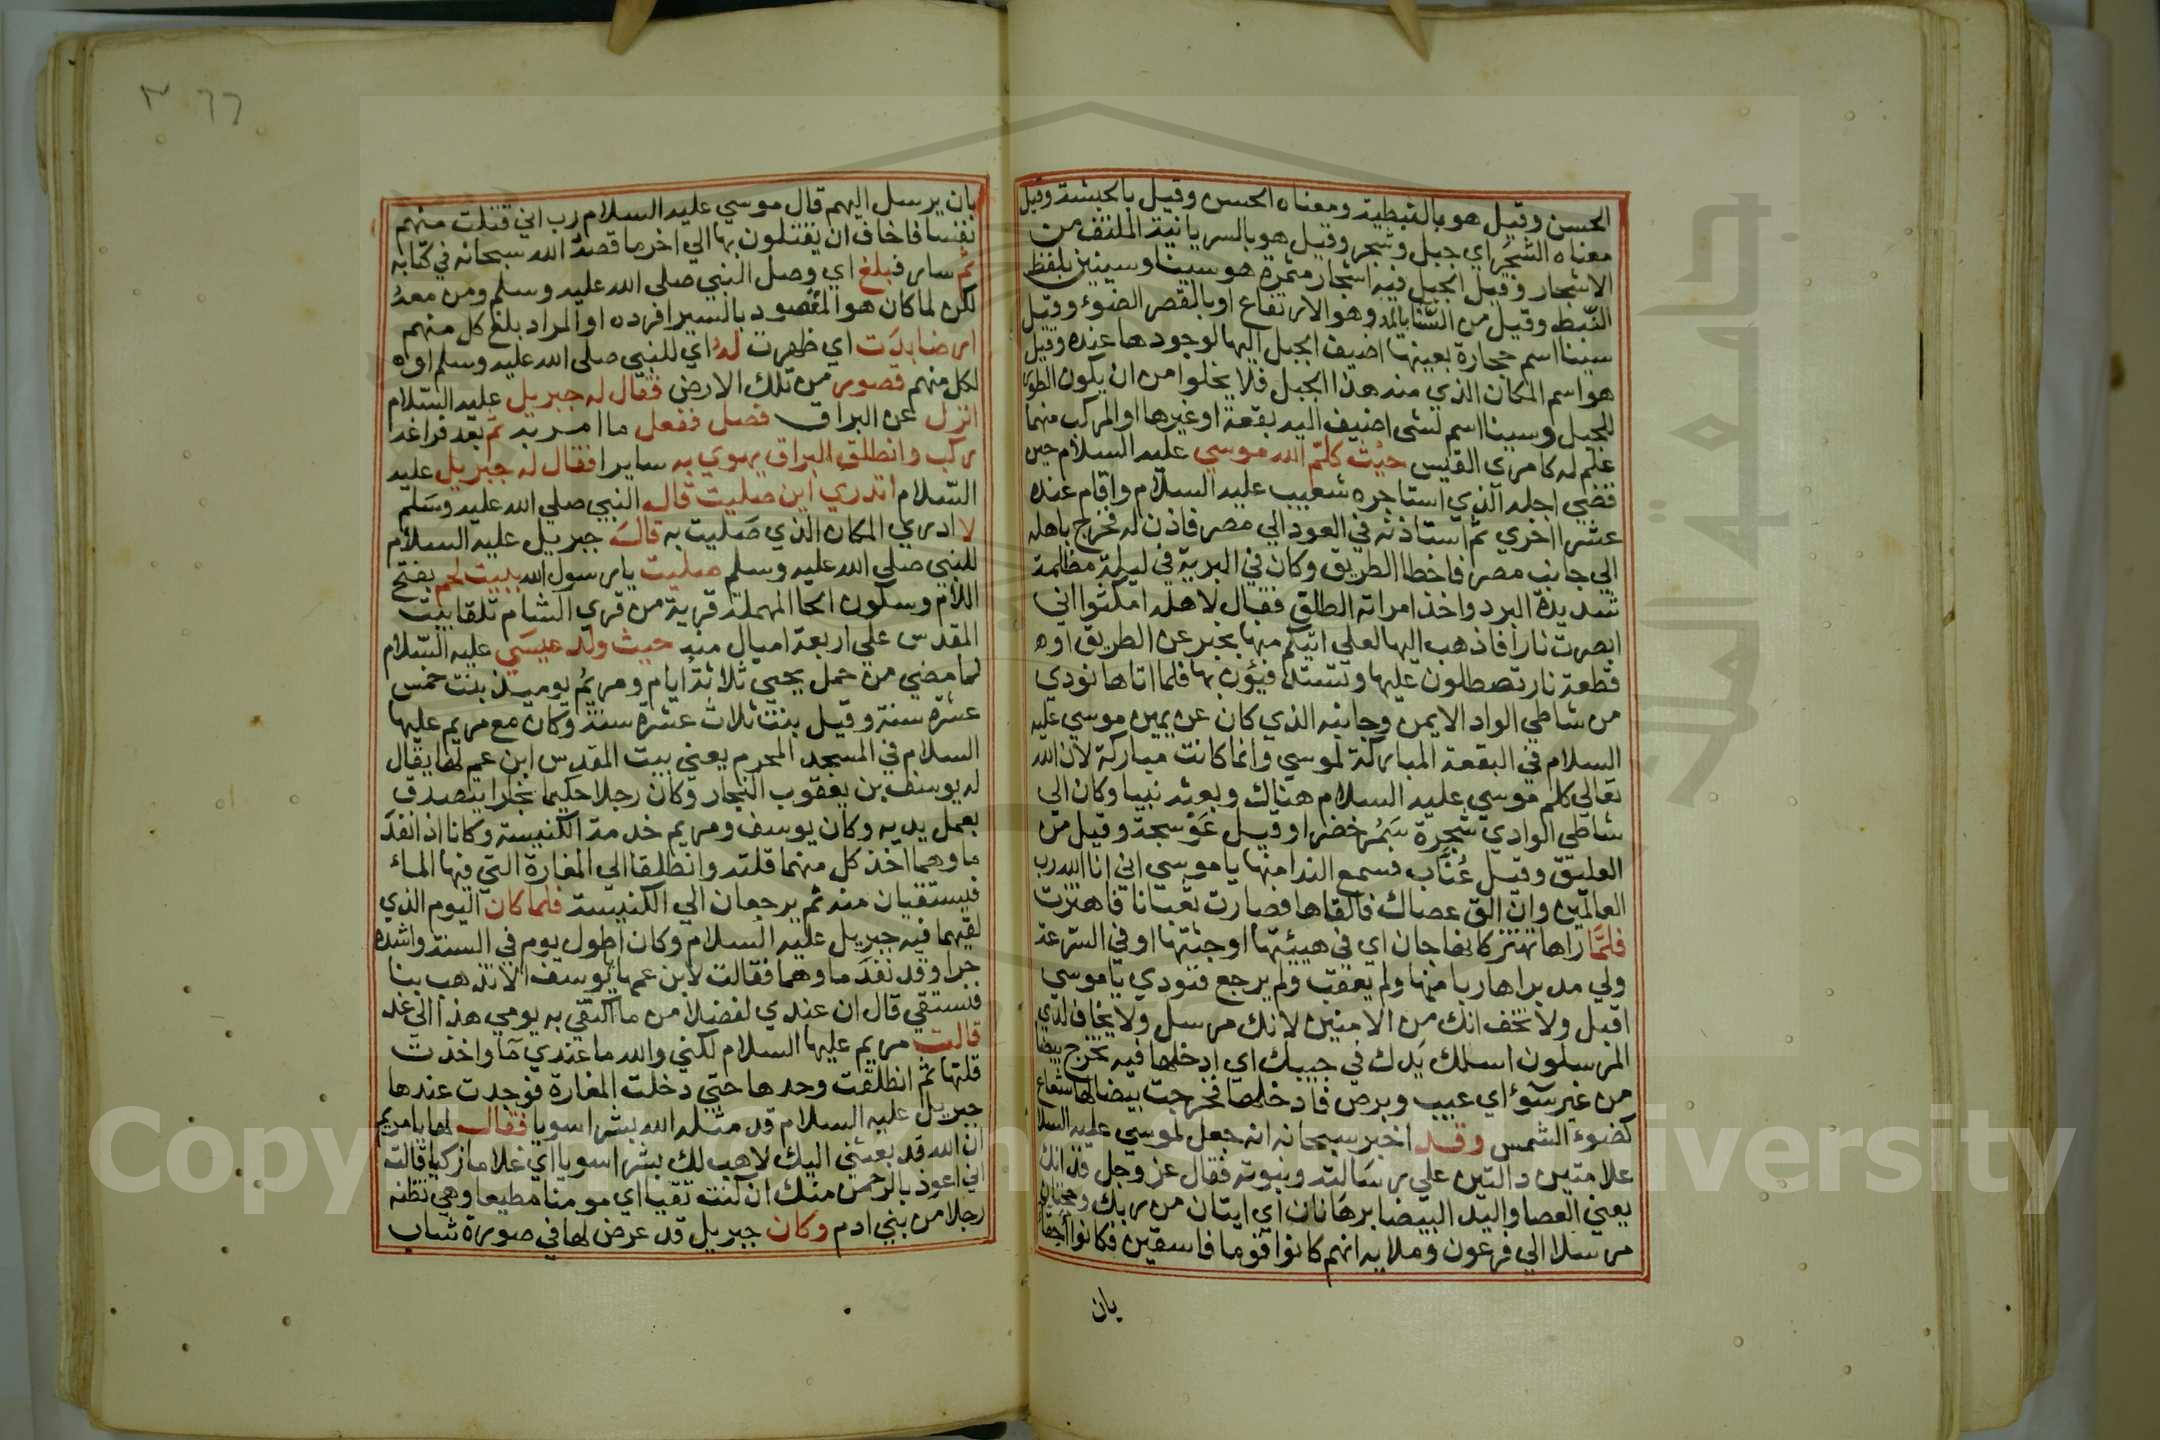 الحسن وقيل هو بالنبطية ومعناه الحسن وقيل بالحبشة وقيل
معناه الشجر اي جبل وشجر وقيل هو بالسريانية الملتف من
الاشجار وقيل الجبل فيه اشجار مثمرة هو سينا وسينين بلفظ
النبط وقيل من السنا بالمد وهو الارتفاع او بالقصر الضوء وقيل
سينا اسم حجارة بعينها اضيف الجبل اليها لوجودها عنده وقيل
هو اسم المكان الذي منه هذا الجبل فلا يخلوا من ان يكون الطور
للجبل وسينا اسم لشى اضيف اليه بقعة او غيرها او المركب منهما
علم له كامرى القيس حيث كلم الله موسي عليه السلام حين
قضي اجله الذي استاجره شعيب عليه السلام واقام عنده
عشرا اخري ثم استاذنه في العود الي مصر فاذن له فخرج باهله
الي جانب مصر فاخطا الطريق وكان في البرية في ليلة مظلمة
شديدة البرد واخذ امراته الطلق فقال لاهله امكثوا اني
ابصرت نارا فاذهب اليها لعلي اتيكم منها بخبر عن الطريق او ه
قطعة نار تصطلون عليها وتستدفيؤن بها فلما اتاها نودي
من شاطي الواد الايمن وجانبه الذي كان عن يمين موسي عليه
السلام في البقعة المباركة لموسي وانما كانت مباركة لان الله
تعالي كلم موسي عليه السلام هناك وبعثه نبيا وكان الي
شاطي الوادي شجرة سمر خضرا وقيل عوسجة وقيل من
العليق وقيل عناب فسمع الندا منها يا موسي اني انا الله رب
العالمين وان الق عصاك فالقاها فصارت ثعبانا فاهتزت
فلما راها تهتز كانها جان اي في هيئتها او جثتها او في السرعة
ولي مدبرا هاربا منها ولم يعقب ولم يرجع فنودي يا موسي
اقبل ولا تخف انك من الامنين لانك مرسل ولا يخاف لدي
المرسلون اسلك يدك في جيبك اي ادخلها فيه تخرج بيضا
من غير سوء اي عيب وبرص فادخلها فخرجت بيضا لها شعاع
كضوء الشمس وقد اخبر سبحانه انه جعل لموسي عليه السلا
علامتين دالتين علي رسالته ونبوته فقال عز وجل فذانك
يعني العصا واليد البيضا برهانان اي ايتان من ربك
مرسلا الي فرعون وملايه انهم كانوا قوما فاسقين فكانوا احقا
بان
٣٦٦
بان يرسل اليهم قال موسي عليه السلام رب اني قتلت منهم
نفسا فاخاف ان يقتلون بها الي اخر ما قصه الله سبحانه في كتابه
ثم سار فبلغ اي وصل النبي صلي الله عليه وسلم ومن معه
لكن لما كان هو المقصود بالسير افرده او المراد بلغ كل منهم
ارضا بدت اي ظهرت له اي للنبي صلي الله عليه وسلم او ه
لكل منهم قصور من تلك الارض فقال له جبريل عليه السلام
انزل عن البراق فصل ففعل ما امر به ثم بعد فراغه
ركب وانطلق البراق يهوي به سايرا فقال له جبريل عليه
السلام اتدري اين صليت قال النبي صلي الله عليه وسلم
لا ادري المكان الذي صليت به قال جبريل عليه السلام
للنبي صلي الله عليه وسلم صليت يا رسول الله ببيت لحم بفتح
اللام وسكون الحا المهملة قرية من قري الشام تلقا بيت
المقدس علي اربعة اميال منه حيث ولد عيسي عليه السلام
لما مضي من حمل يحيي ثلاثة ايام ومريم يوميذ بنت خمس
عشرة سنة وقيل بنت ثلاث عشرة سنة وكان مع مريم عليها
السلام في المسجد المحرم يعني بيت المقدس ابن عم لها يقال
له يوسف بن يعقوب النجار وكان رجلا حليما نجارا يتصدق
بعمل يديه وكان يوسف ومريم خدمة الكنيسة وكانا اذا نفد
ماوهما اخذ كل منهما قلته وانطلقا الي المغارة التي فيها الماء
فيستقيان منه ثم يرجعان الي الكنيسة فلما كان اليوم الذي
لقيهما فيه جبريل عليه السلام وكان اطول يوم في السنة واشده
حرا وقد نفد ماوهما فقالت لابن عمها يوسف الا تذهب بنا
فنستقي قال ان عندي لفضلا من ما اكتفي به يومي هذا الي غد
قالت مريم عليها السلام لكني والله ما عندي ما واخذت
قلتها ثم انطلقت وحدها حتي دخلت المغارة فوجدت عندها
جبريل عليه السلام قد مثله الله بشرا سويا فقال لها يا مريم
ان الله قد بعثني اليك لاهب لك بشرا سويا اي غلاما زكيا قالت
اني اعوذ بالرحمن منك ان كنت تقيا اي مومنا مطيعا وهي تظنه
رجلا من بني ادم وكان جبريل قد عرض لها في صورة شاب